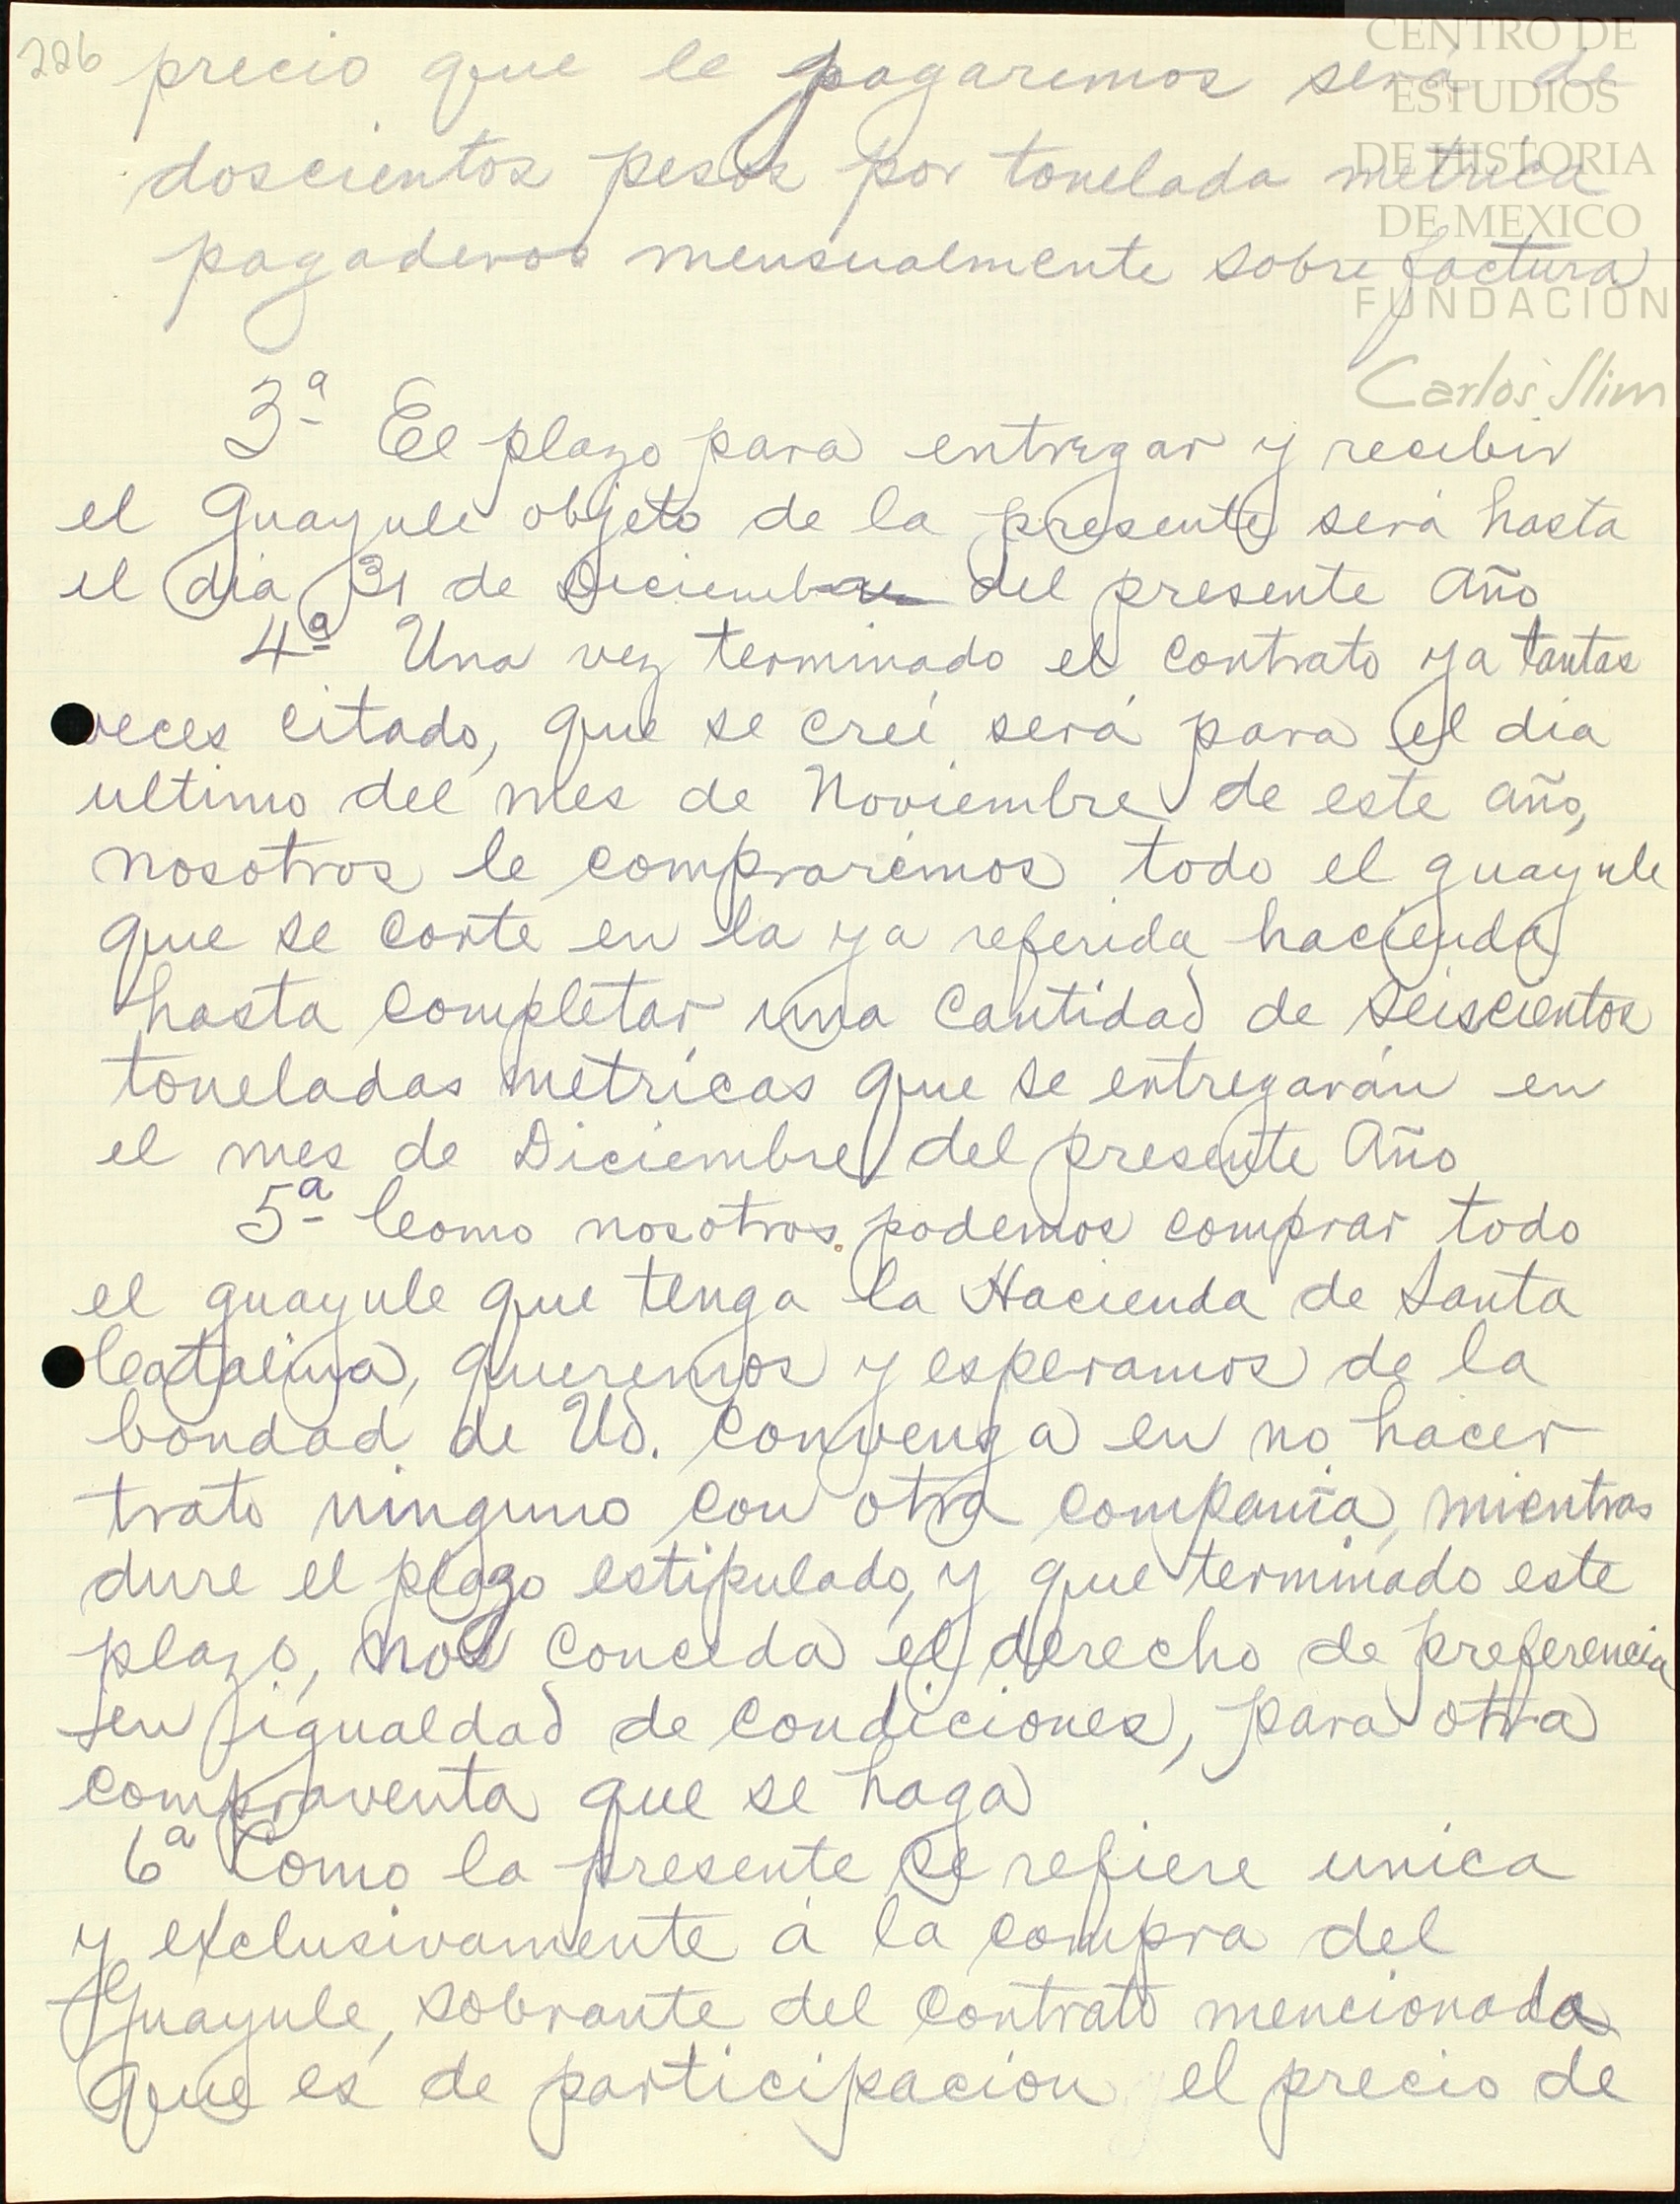 CENTRO DE
ESTUDIOS
DE HISTORIA
DE MEXICO
FUNDACIÓN
Carlos Slim
226 precio que le pagaremos será de
doscientos pesos por tonelada métrica
pagaderos mensualmente sobre factura
3ª El plazo para entregar y recibir
el guayule objeto de la presente será hasta
el dia 31 de Diciembre del presente Año
4ª Una vez terminado el contrato ya tantas
veces citado, que se creé será para el dia
ultimo del mes de Noviembre de este año,
nosotros le compraremos todo el guayule
que se corte en la ya referida hacienda
hasta completar una cantidad de seiscientos
toneladas metricas que se entregarán en
el mes de Diciembre del presente Año
5ª Como nosotros podemos comprar todo
el guayule que tenga la Hacienda de Santa
Catalina, queremos y esperamos de la
bondad de Ud. convenga en no hacer
trato ninguno con otra compañia, mientras
dure el plazo estipulado, y que terminado este
plazo, nos conceda el derecho de preferencia
en igualdad de condiciones, para otra
compraventa que se haga
6ª Como la presente se refiere unica
y exclusivamente á la compra del
Guayule, sobrante del contrato mencionado
que es de participacion el precio de